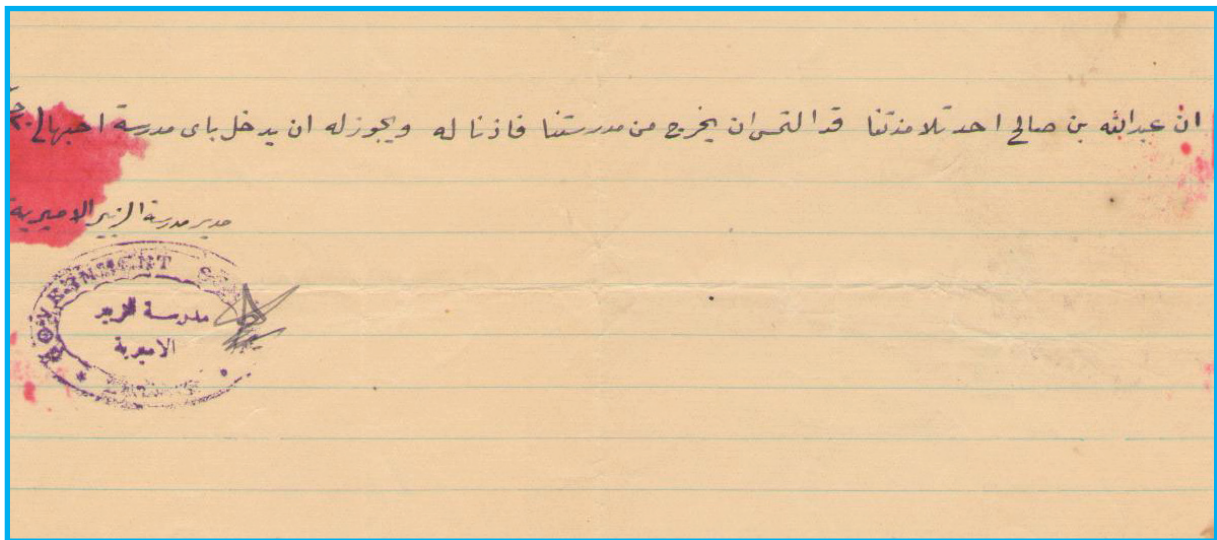 ان عبدالله بن صالح احد تلامذتنا قد التمس ان يخرج من مدرستنا فاذنا له ويجوز له ان يدخل باى مدرسة احبها
مدير مدرسة الزبير الاميرية
GOVERNMENT
مدرسة الزبير
الاميرية